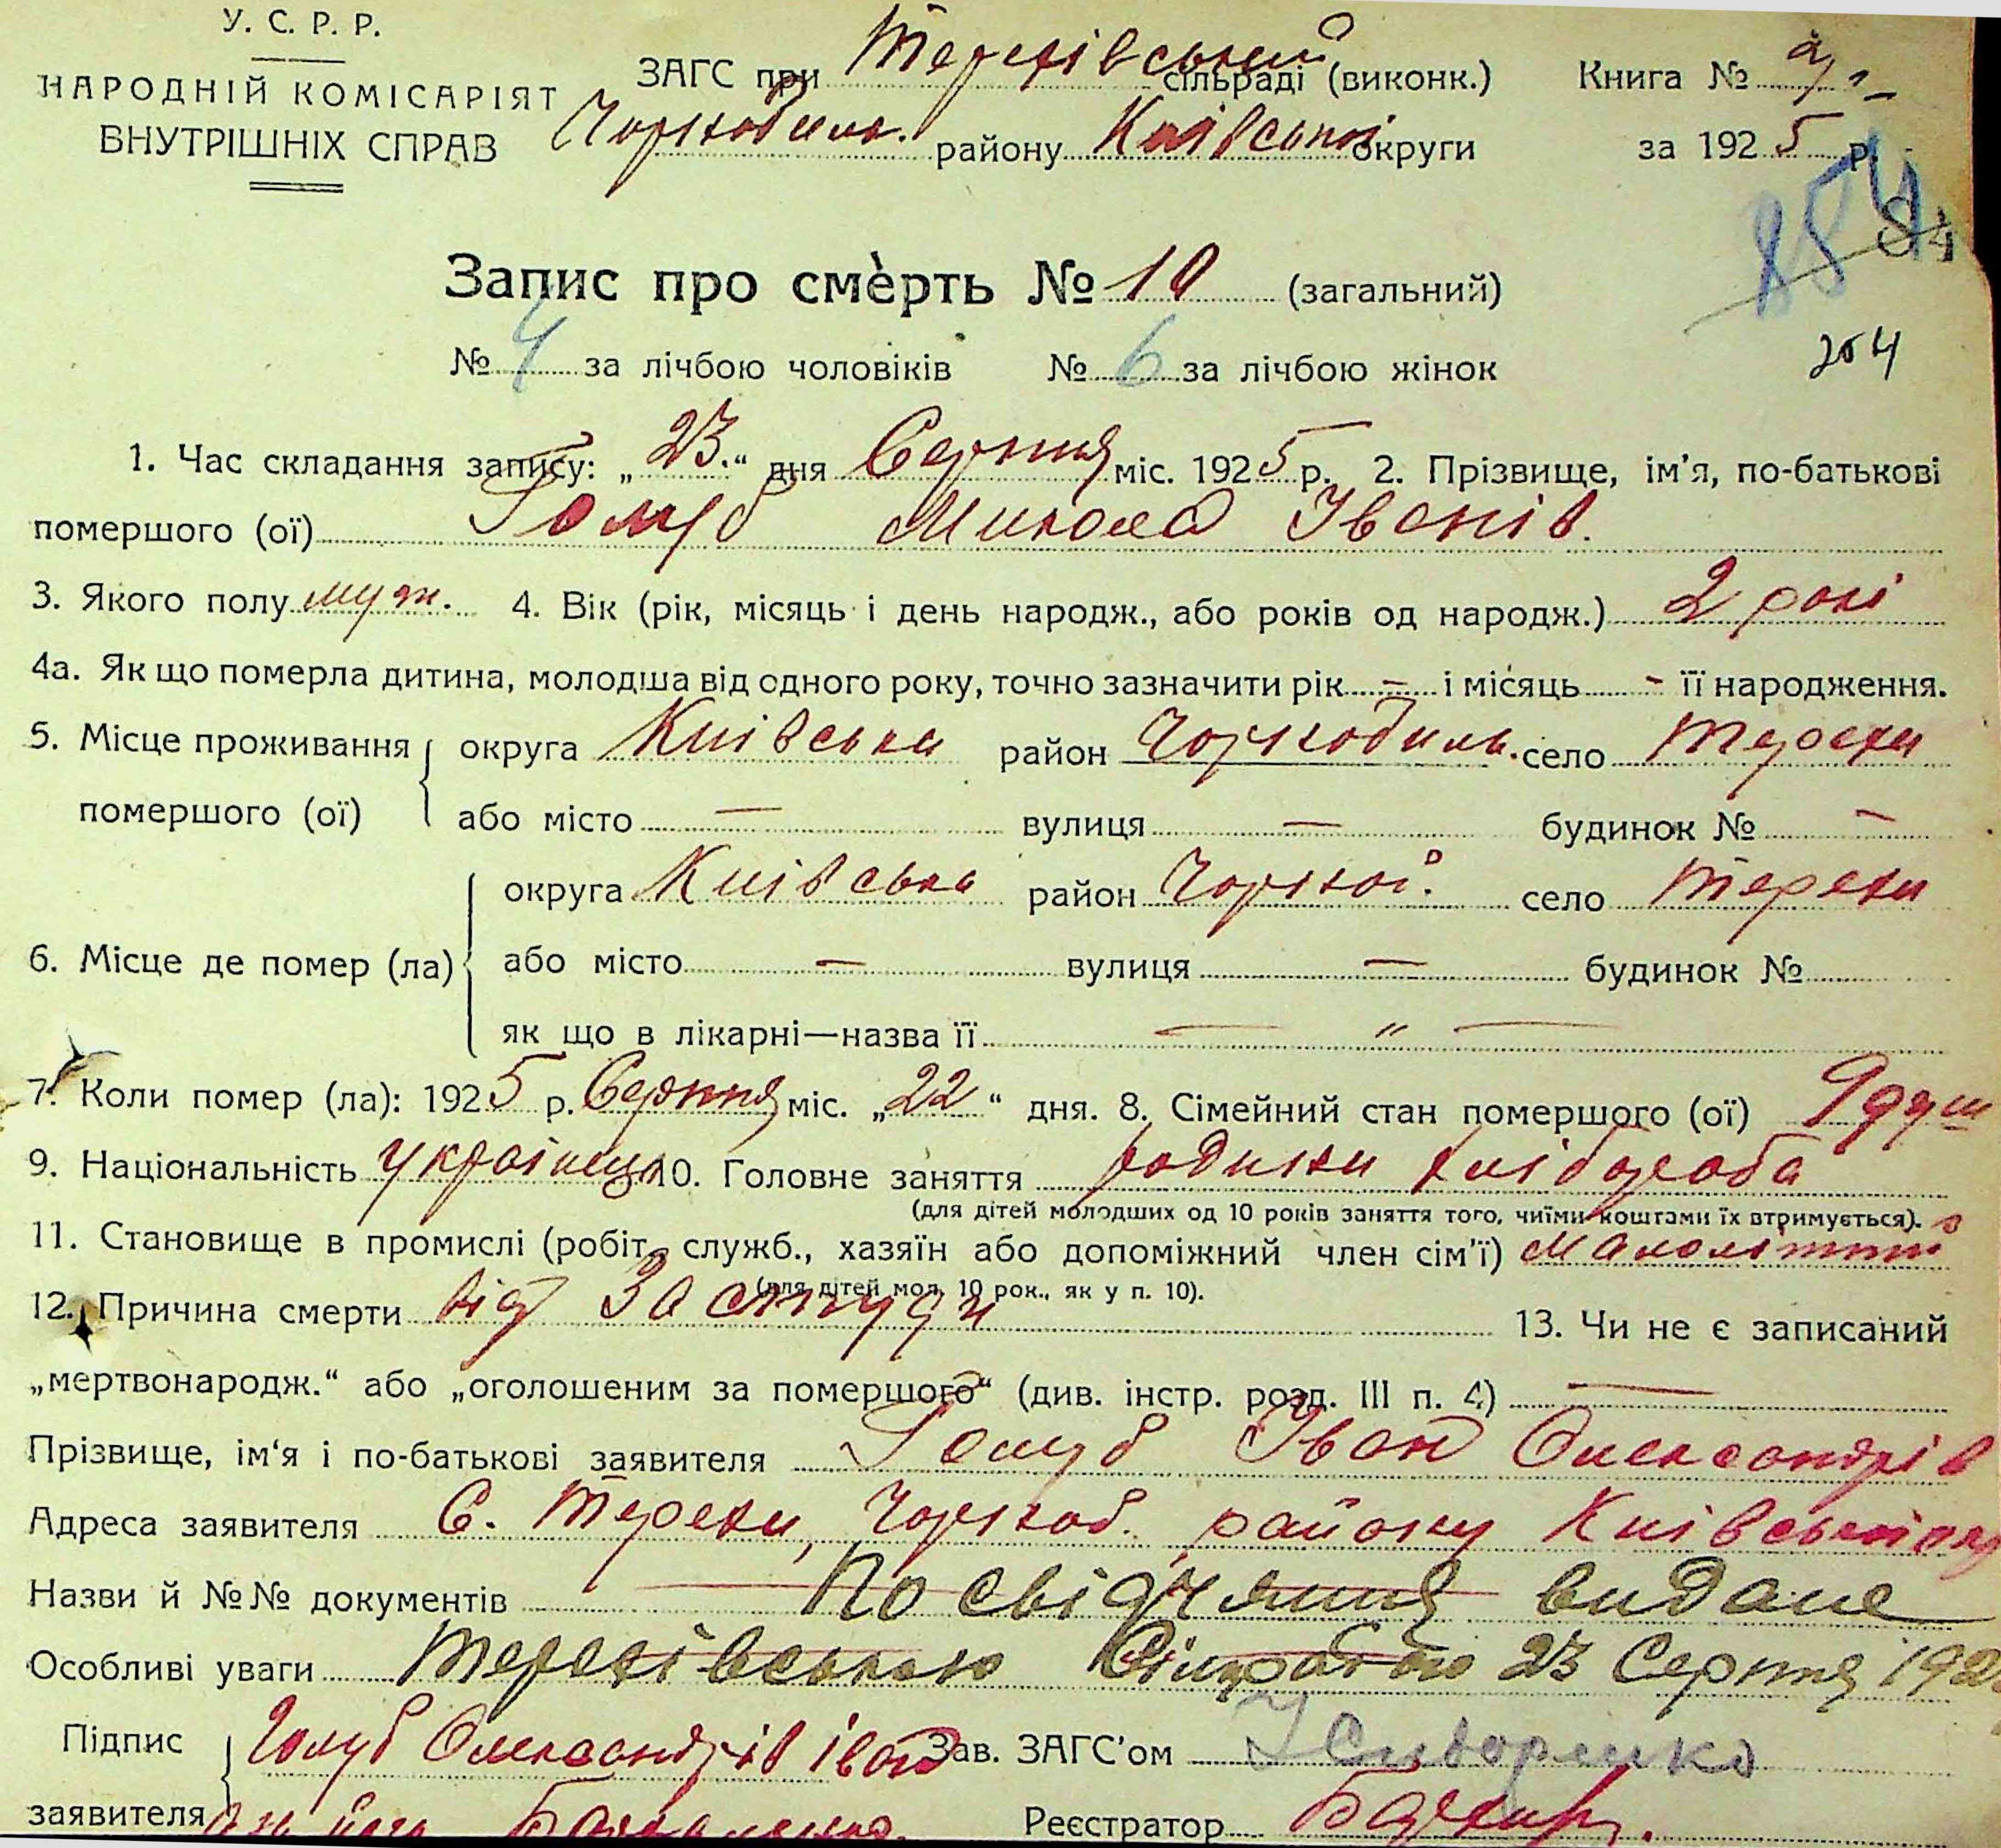 У. С. Р. Р.
НАРОДНІЙ КОМІСАРІЯТ
ВНУТРІШНІХ СПРАВ
ЗАГС при Терехівський сільраді (виконк.)
Чорнобиль. району Київської округи
Книга №
за 1925 р.
84
204
Запис про смерть № 10 (загальний)
№ 4 за лічбою чоловіків № 6 за лічбою жінок
1. Час складання запису: „23.“ дня Серпня міс. 1925 р. 2. Прізвище, ім'я, по-батькові
помершого (ої) Голуб Микола Іванів.
3. Якого полу муж. 4. Вік (рік, місяць і день народж., або років од народж.) 2 рокі
4а. Як що померла дитина, молодша від одного року, точно зазначити рік — і місяць - її народження.
5. Місце проживання помершого (ої) округа Київська район Чорнобиль. село Терехи
або місто — вулиця — будинок № —
6. Місце де помер (ла) округа Київська район Чорноб. село Терехи
або місто — вулиця — будинок №
як що в лікарні—назва її — „ —
7. Коли помер (ла): 1925 р. Серпня міс. „22“ дня. 8. Сімейний стан помершого (ої) 9 душ
9. Національність українец 10. Головне заняття родини хлібороба
(для дітей молодших од 10 років заняття того, чиїми коштами їх втримується).
11. Становище в промислі (робіт., служб., хазяїн або допоміжний член сім'ї) Малолітний
(для дітей мол. 10 рок., як у п. 10).
12. Причина смерти від Застуди 13. Чи не є записаний
„мертвонародж.“ або „оголошеним за помершого“ (див. інстр. розд. III п. 4) —
Прізвище, ім'я і по-батькові заявителя Голуб Іван Олександрів
Адреса заявителя С. Терехи, Чорноб. району Київської окр
Назви й №№ документів Посвідчання видане
Особливі уваги Терехівською Сільрадою 23 Серпня 192
Підпис заявителя Голуб Олександрів Іван Зав. ЗАГС'ом
Реєстратор